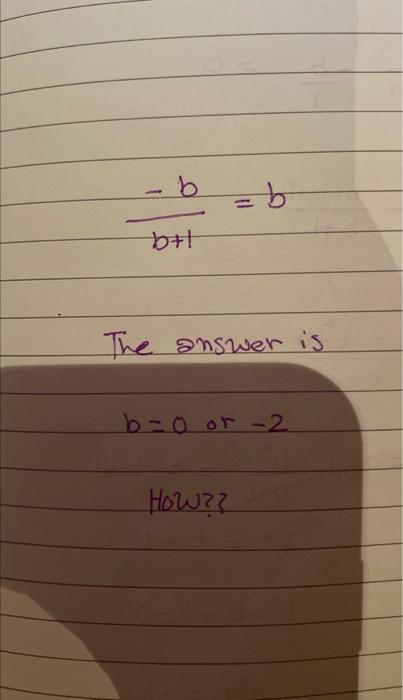 - b
b+1
= b
The answer is
b=0 or -2
How??